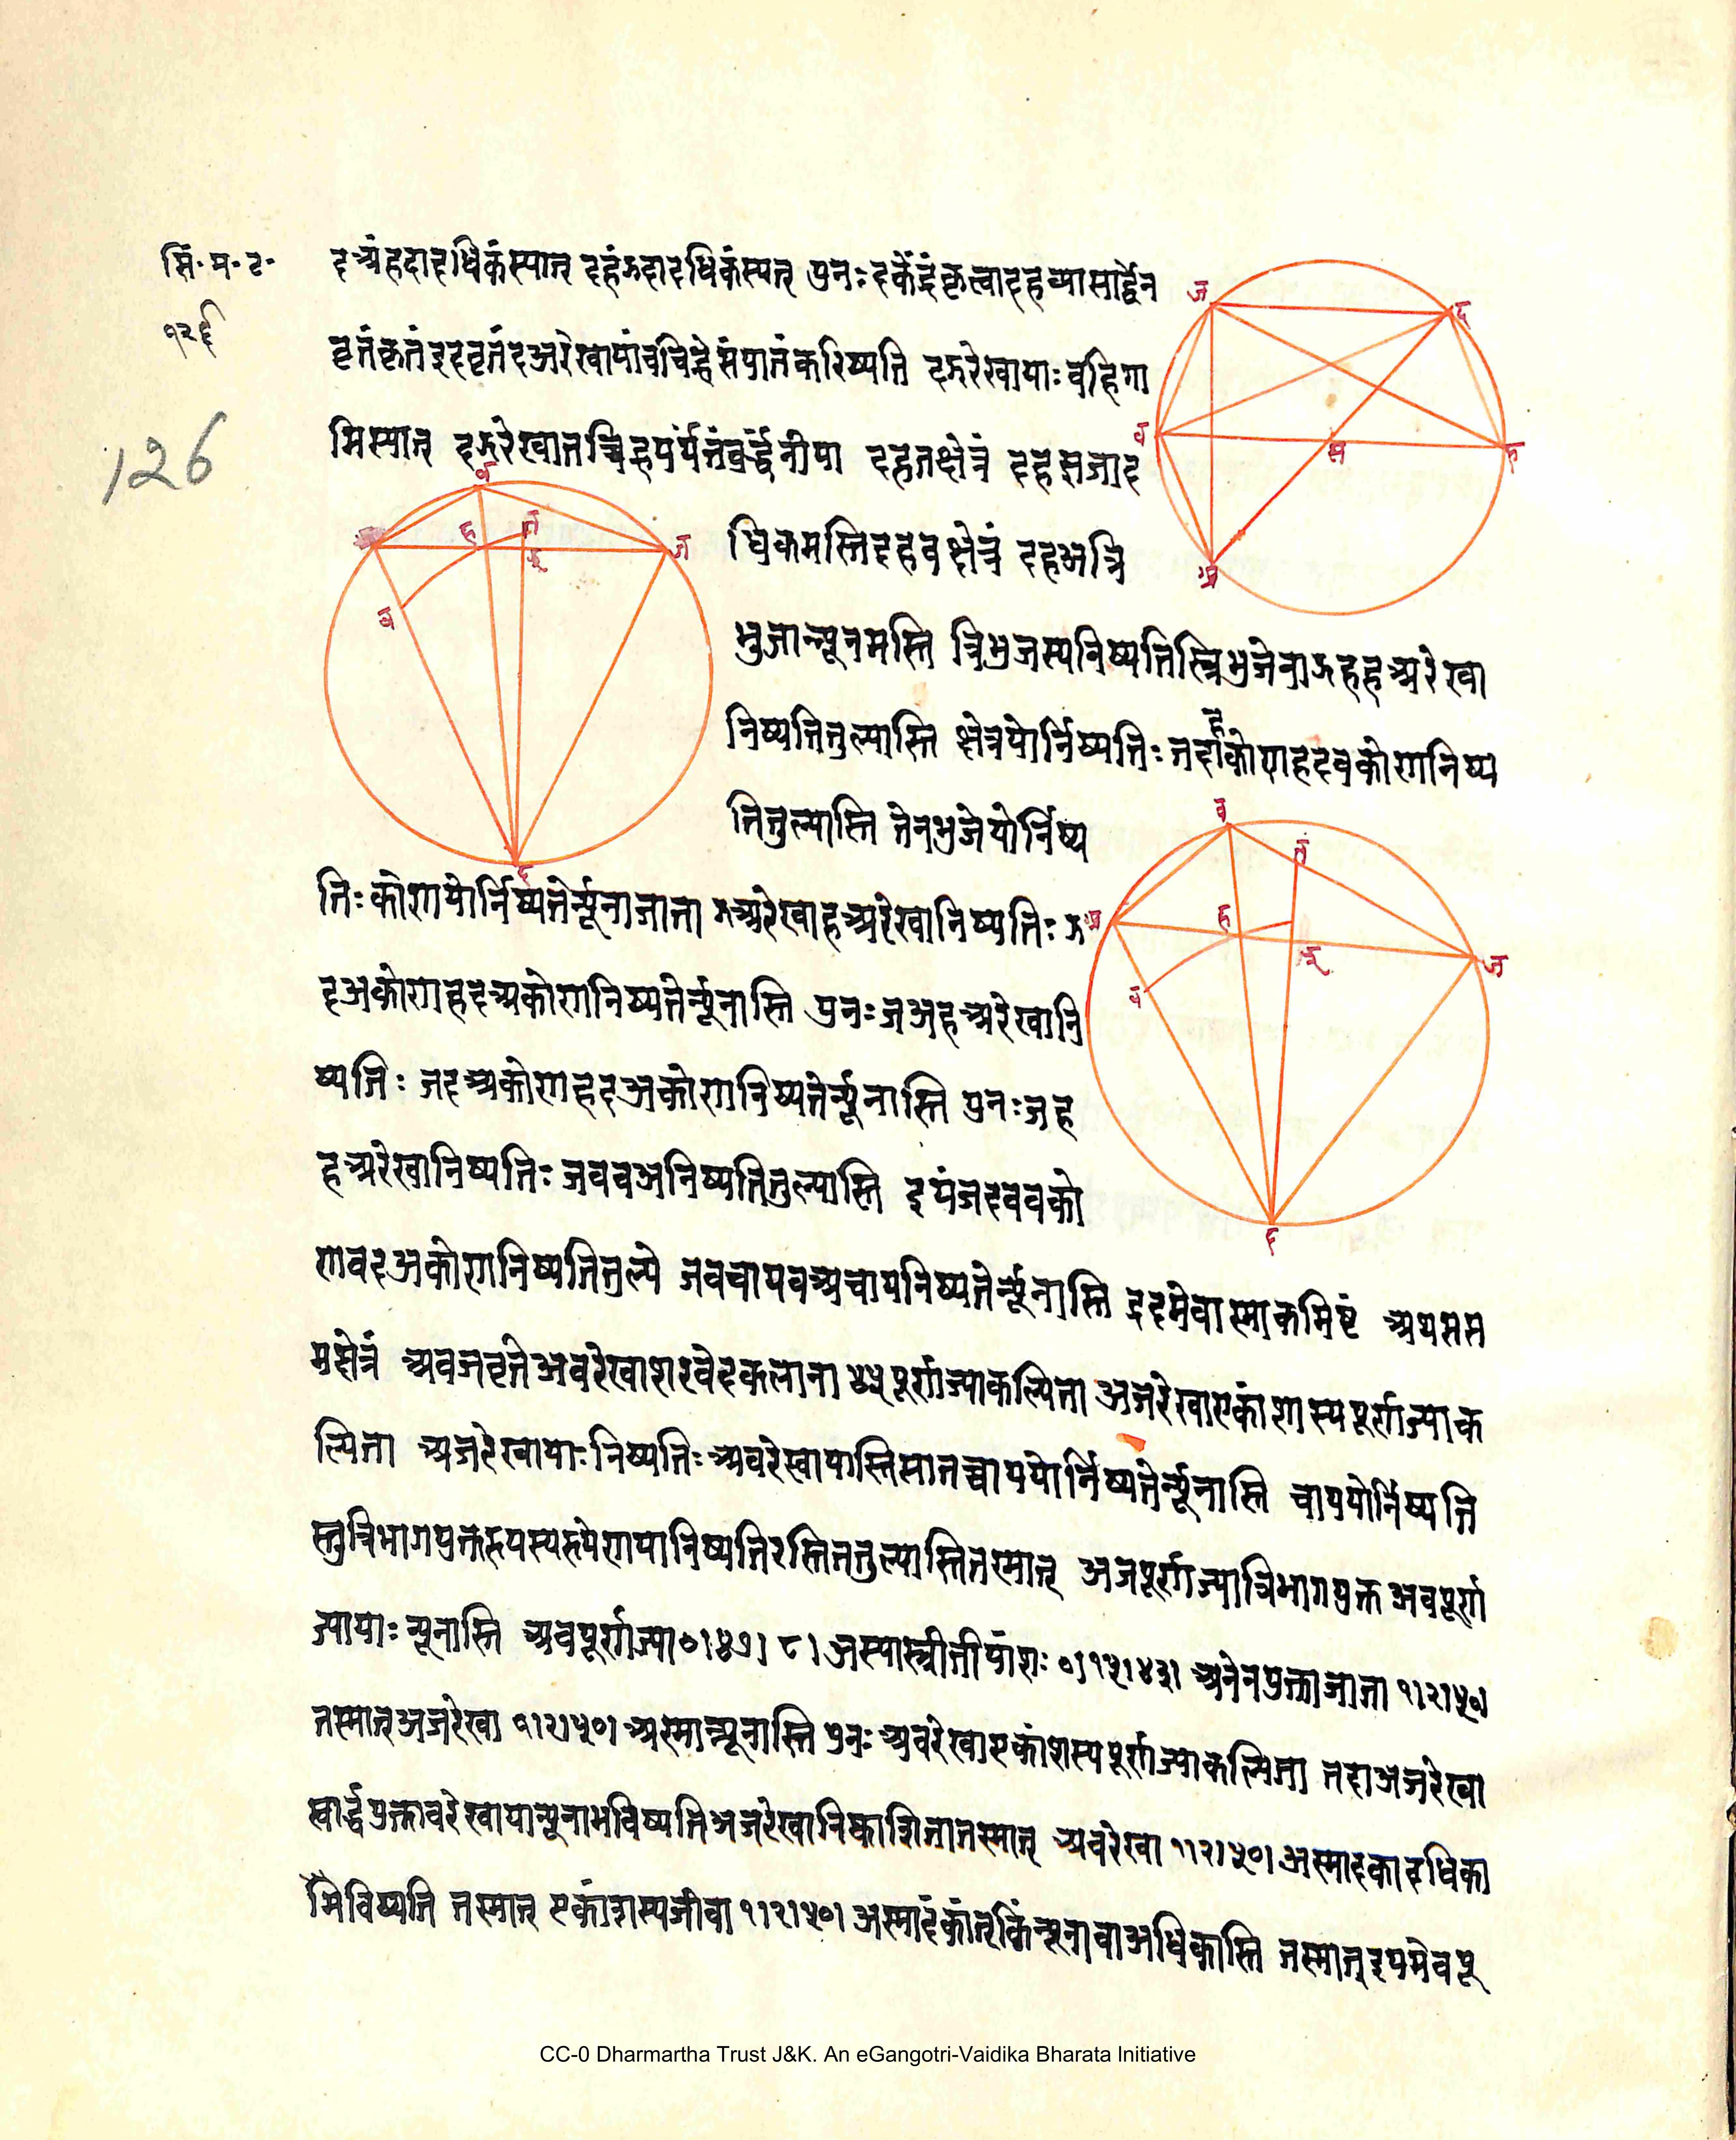 सिं. स. ट.
१२६
126
दअं हदादधिकं स्यात् दहं झदादधिकं स्यत् पुनः दकेंद्रं कृत्वा दहव्यासार्द्धेन
वृत्तं कृतं इदवृत्तं दअरेखायां वचिह्ने संपातं करिष्यति दझरेखायाः बहिर्गा
मि स्यात् दझरेखा तच्चिह्नपर्यंतं वर्द्धनीया दहतक्षेत्रं दहझजाद
धिकमस्ति दहवक्षेत्रं दहअत्रि
भुजान्न्यूनमस्ति त्रिभुजस्य निष्पत्तिस्त्रिभुजेना झहहअरेखा
निष्पत्तितुल्यास्ति क्षेत्रयोर्निष्पत्तिः तदहकोणहदवकोणनिष्प
त्तितुल्यास्ति तेन भुजयोर्निष्प
त्तिः कोणयोर्निष्पत्तेर्न्यूना जाता झअरेखाहअरेखानिष्पत्तिः झ
दअकोणहदअकोणनिष्पत्तेर्न्यूनास्ति पुनः जअहअरेखानि
ष्पत्तिः जदअकोणहदअकोणनिष्पत्तेर्न्यूनास्ति पुनः जह
हअरेखानिष्पत्तिः जबबअनिष्पत्तितुल्यास्ति इयं जदबबको
णबदअकोणनिष्पत्तितुल्ये जबचापबअचापनिष्पत्तेर्न्यूनास्ति इदमेवास्माकमिष्टं अथ सप्त
मक्षेत्रं अबजवृत्ते अबरेखा शरवेदकलाना ४५ पूर्णज्या कल्पिता अजरेखा एकांशास्य पूर्णज्या क
ल्पिता अजरेखायाः निष्पत्तिः अबरेखायास्ति सा तच्चापयोर्निष्पत्तेर्न्यूनास्ति चापयोर्निष्पत्ति
स्तु त्रिभागयुक्तरूपस्य रूपेण या निष्पत्तिरस्ति तत्तुल्यास्ति तस्मात् अजपूर्णज्या त्रिभागयुक्त अबपूर्ण
ज्यायाः न्यूनास्ति अबपूर्णज्या ०।४७। ८। अस्यास्त्रीतीयांशः ०।१५।४३। अनेन युक्ता जाता १।२।५०।
तस्मात् अजरेखा १।२।५०। अस्मान्न्यूनास्ति पुनः अबरेखा एकांशस्य पूर्णज्या कल्पिता तदा अजरेखा
स्वार्द्धयुक्ताबरेखाया न्यूना भविष्यति अजरेखा निष्काशिता तस्मात् अबरेखा १।२।५०। अस्मादंकादधिका
भविष्यति तस्मात् एकांशस्य जीवा १।२।५०। अस्मादंकात् किं न्यूना वा अधिकास्ति तस्मात् इयमेव पू
ज
द
ब
स
ह
अ
ब
ह
त
झ
ज
व
द
ब
त
अ
ह
झ
ज
व
द
CC-0 Dharmartha Trust J&K. An eGangotri-Vaidika Bharata Initiative